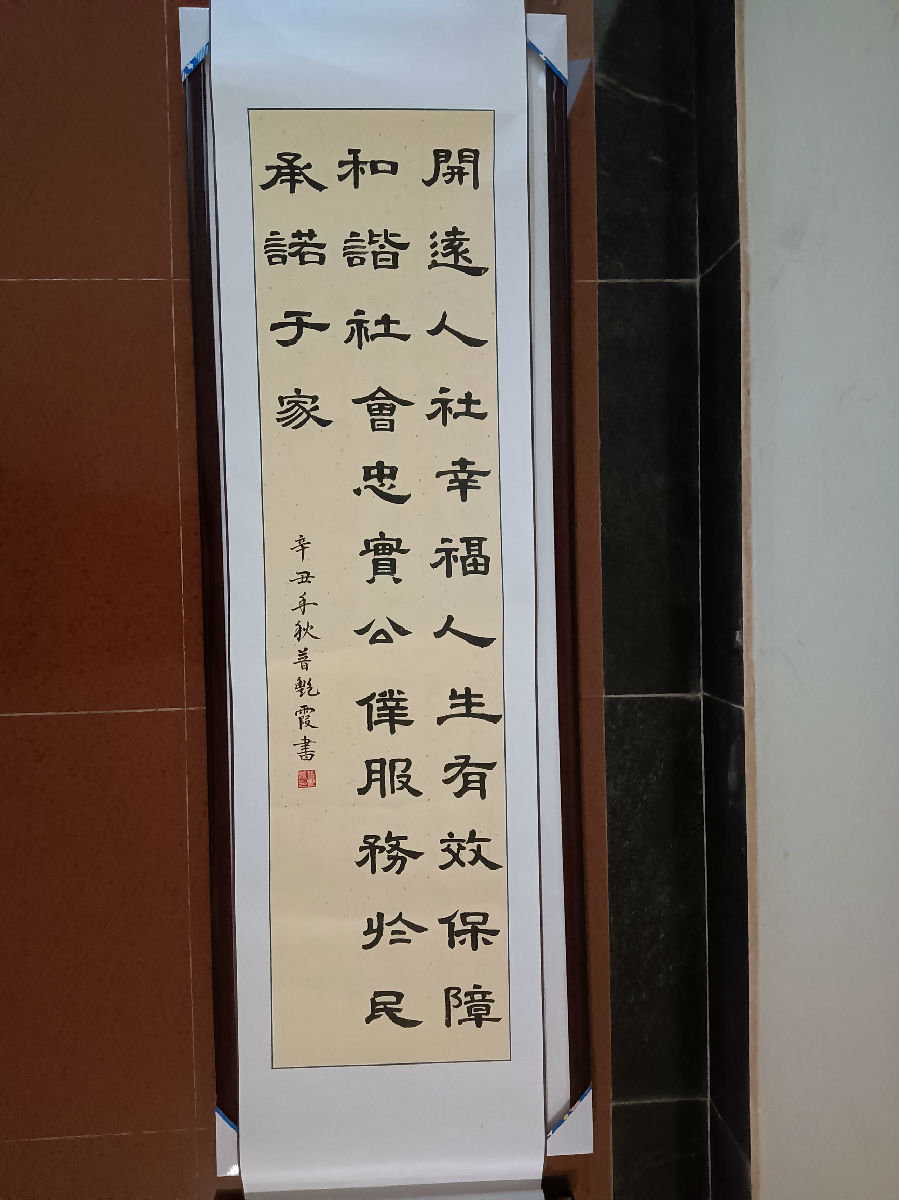 開遠人社幸福人生有效保障
和諧社會忠實公僕服務於民
承諾于家
辛丑年秋普艷霞書